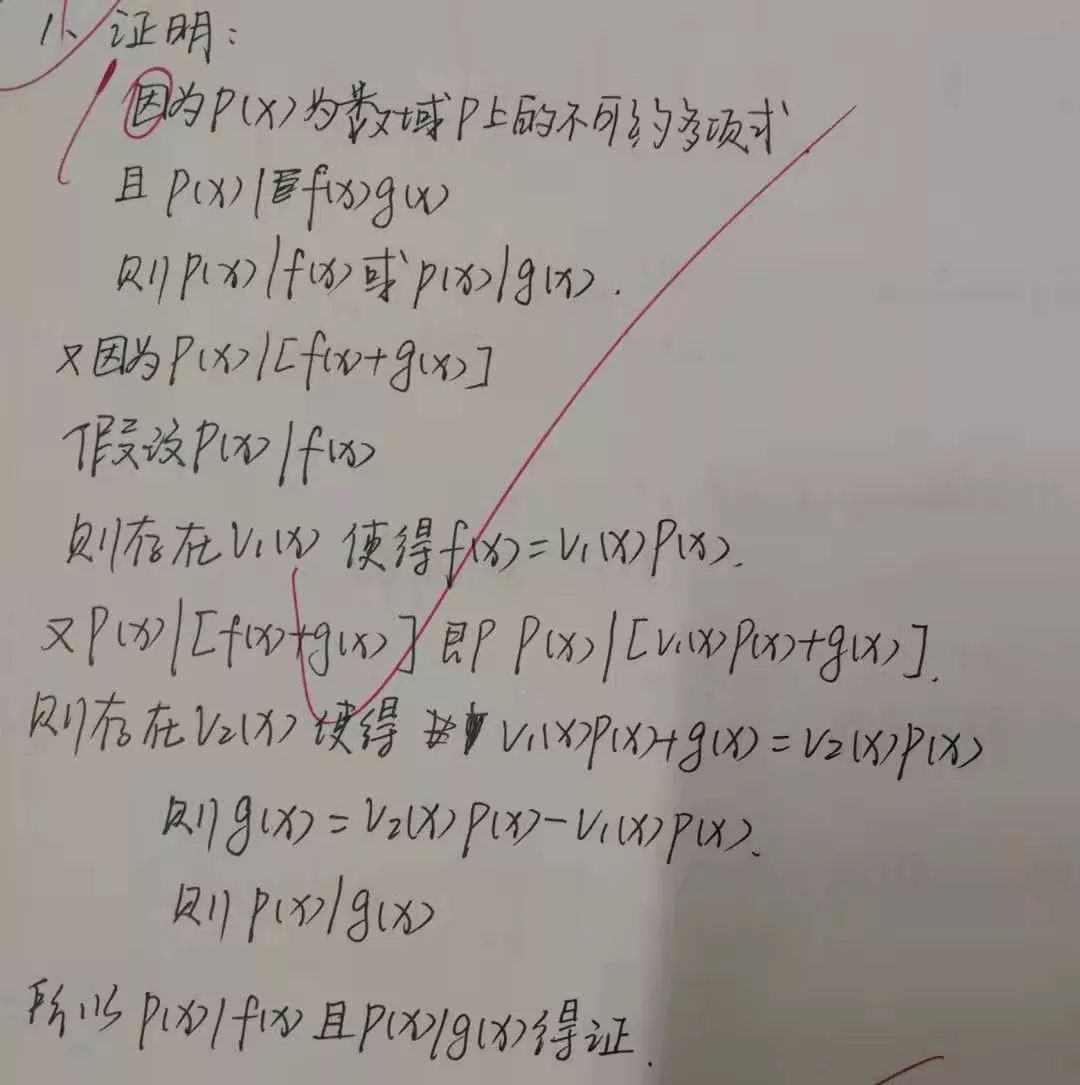 1、证明：
因为p(x)为数域P上的不可约多项式
且 p(x)|f(x)g(x)
则p(x)|f(x)或p(x)|g(x).
又因为p(x)|[f(x)+g(x)]
假设p(x)|f(x)
则存在V₁(x) 使得f(x)=V₁(x)p(x).
又p(x)|[f(x)+g(x)] 即p p(x)|[V₁(x)p(x)+g(x)].
则存在V₂(x) 使得 V₁(x)p(x)+g(x)=V₂(x)p(x)
则g(x)=V₂(x)p(x)-V₁(x)p(x).
则p(x)|g(x)
所以 p(x)|f(x)且p(x)|g(x)得证.